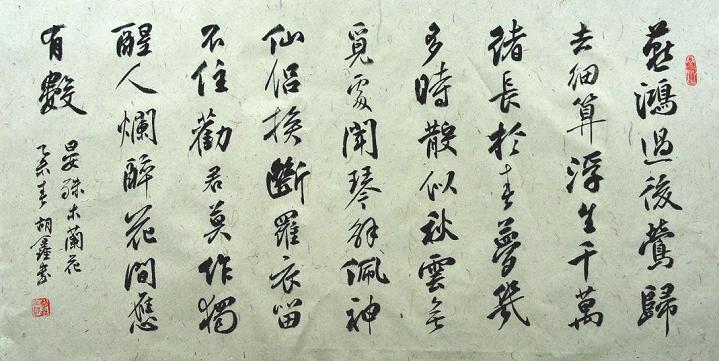 燕鴻過後鶯歸
去細算浮生千萬
緒長於春夢幾
多時散似秋雲無
覓處聞琴解佩神
仙侶挽斷羅衣留
不住勸君莫作獨
醒人爛醉花間應
有數
晏殊木蘭花
乙未春胡鑫書